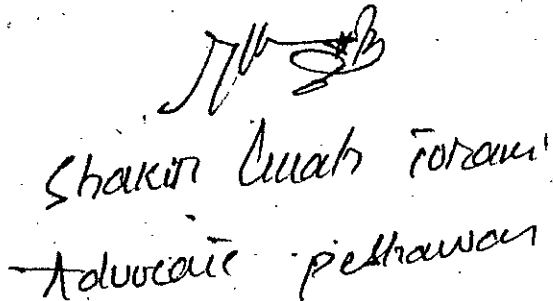 Shakir Ullah Torani
Advocate peshawar